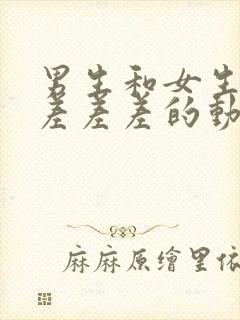 男生和女生
差差差的動
麻麻原繪里依